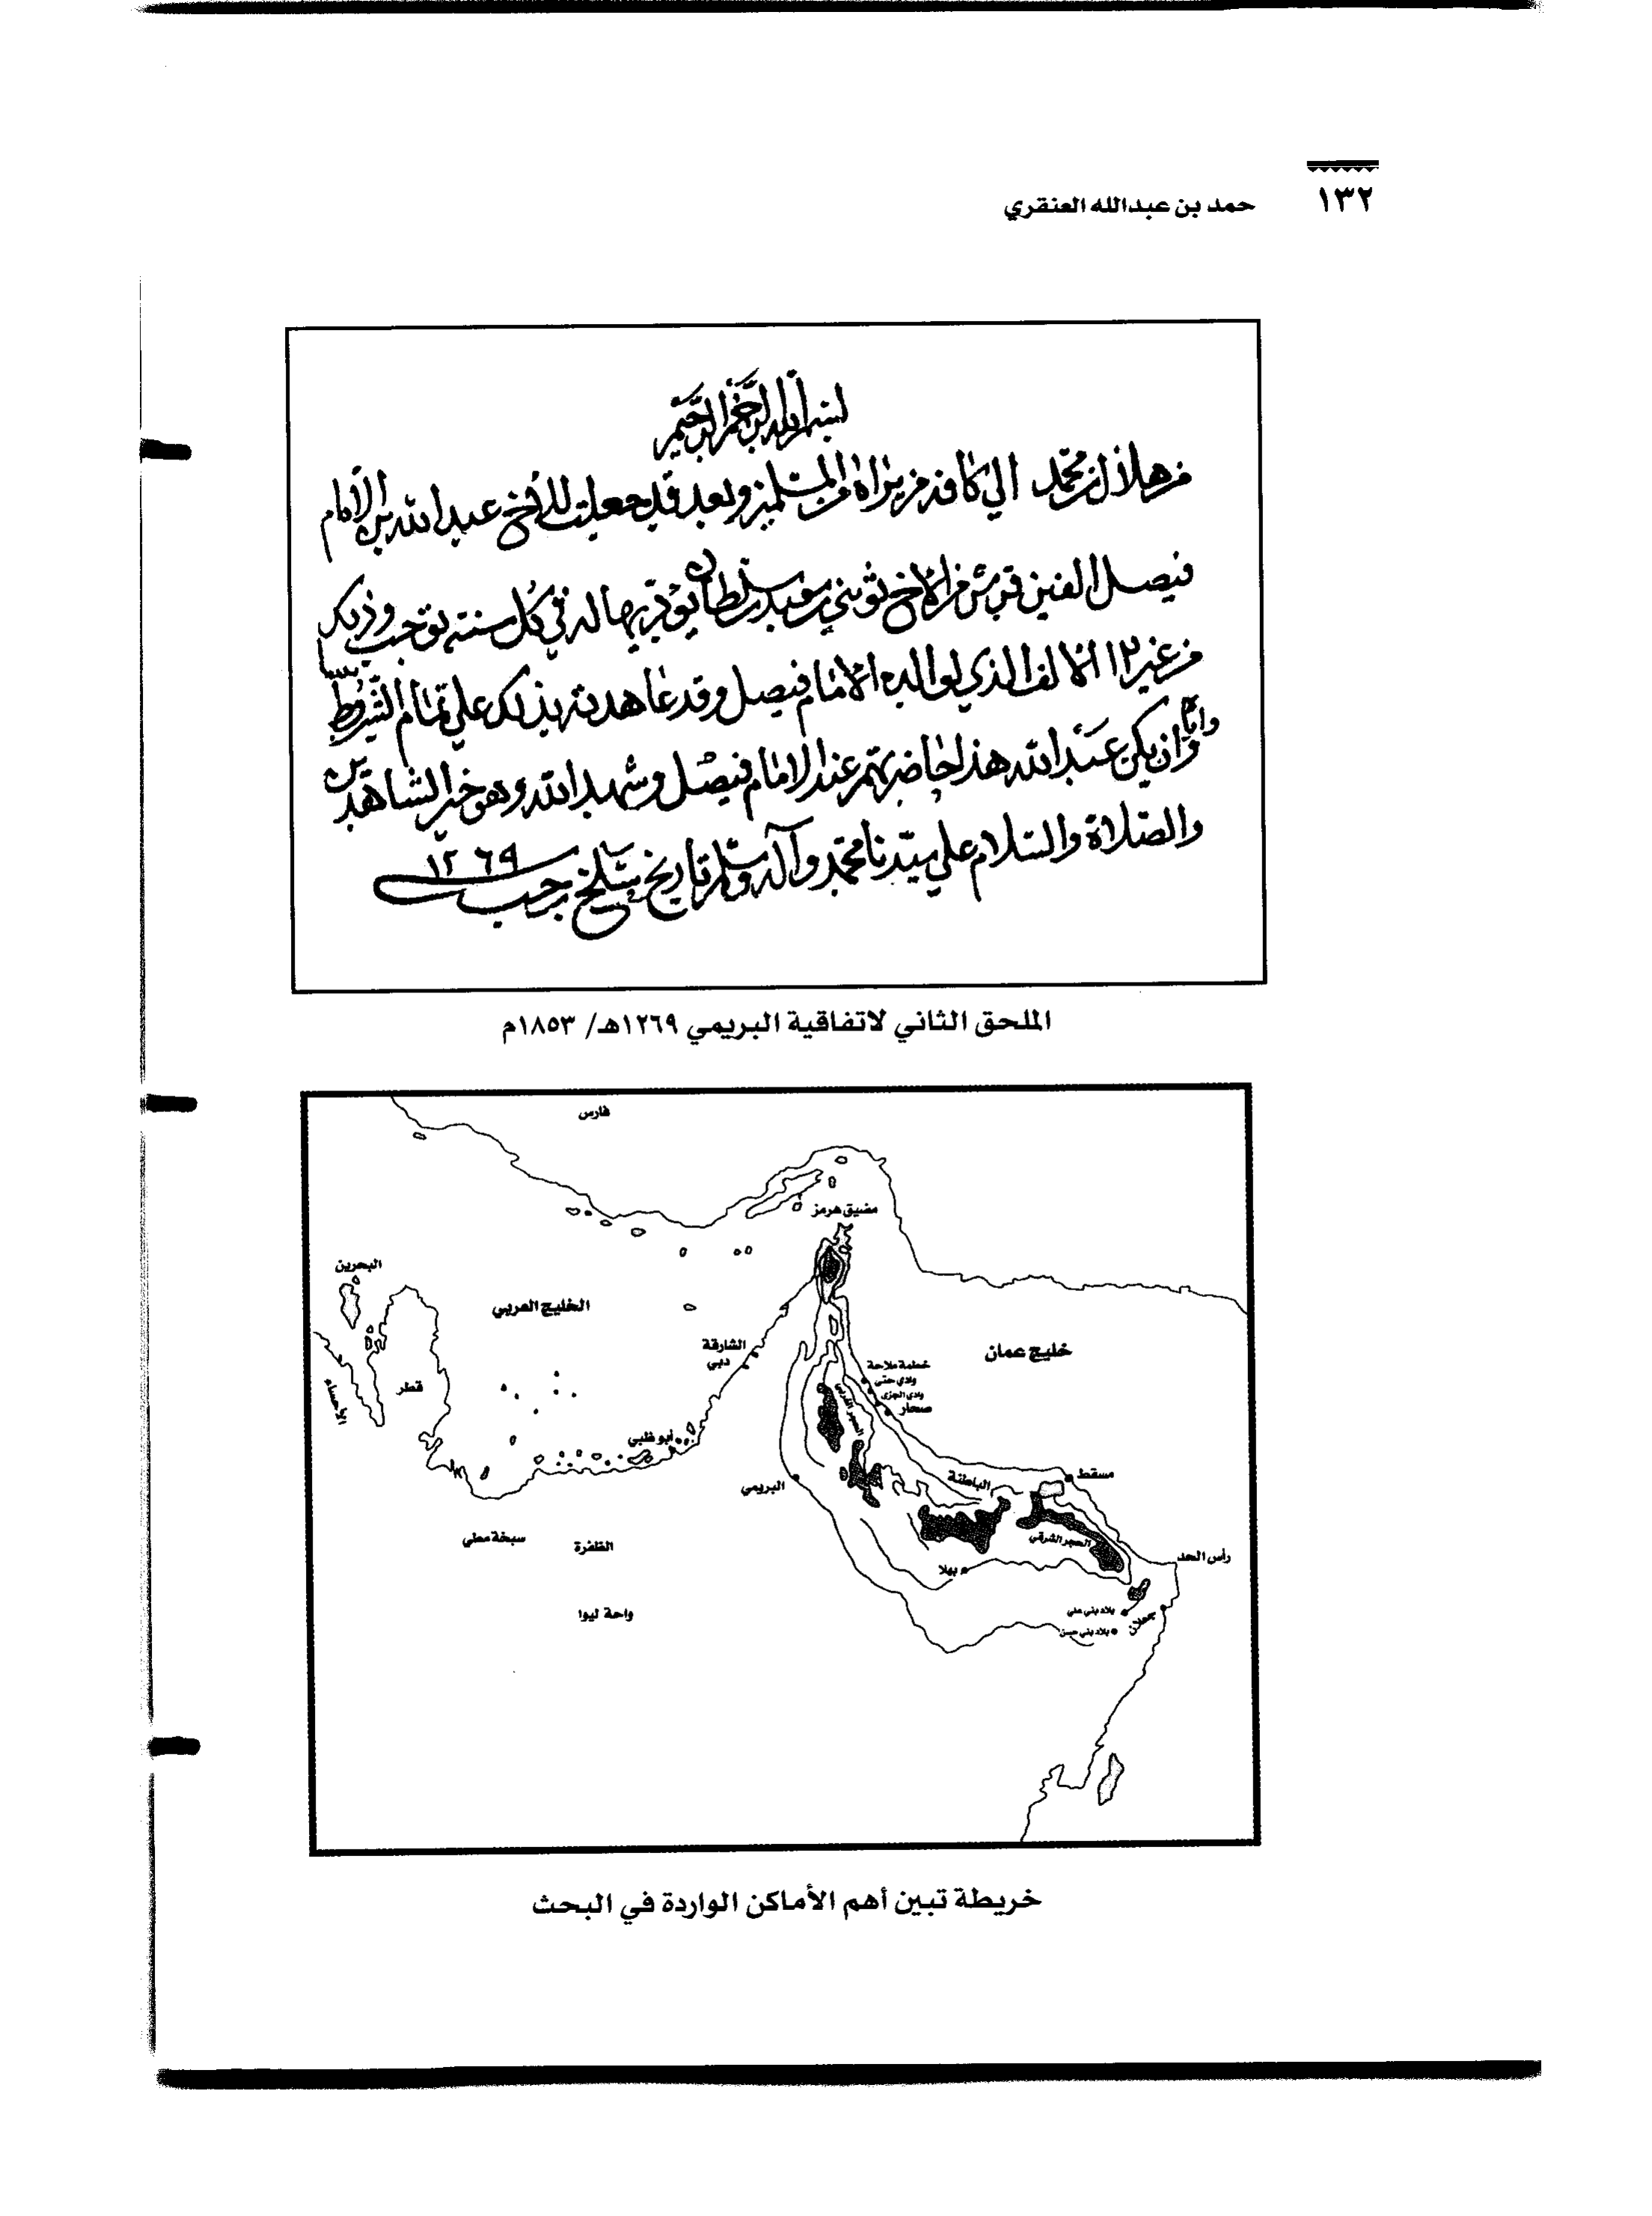 ١٣٢
حمد بن عبدالله العنقري
بسم الله الرحمن الرحيم
من هلال بن محمد الي كافة من يراه من المسلمين وبعد قد جعلت للأخ عبدالله بن الامام
فيصل الفين قرش من الأخ ثويني بن سعيد بن سلطان يؤديها له في كل سنة توجب وذلك
من غير ١٢ الالف الذي لوالده الامام فيصل وقد عاهدته بذلك علي تمام الشروط
وان يكن عبدالله هذا حاضر عند الامام فيصل وشهيد الله وهو خير الشاهدين
والصلاة والسلام علي سيدنا محمد وآله وسلم تاريخ سلخ رجب ١٢٦٩
الملحق الثاني لاتفاقية البريمي ١٢٦٩هـ/ ١٨٥٣م
فارس
مضيق هرمز
البحرين
الخليج العربي
خليج عمان
الشارقة
دبي
خطمة ملاحة
وادي حتى
وادي الجزي
صحار
قطر
الاحساء
الحجر الغربي
أبو ظبي
الباطنة
مسقط
البريمي
سبخة مطي
الظفرة
الحجر الشرقي
رأس الحد
بهلا
واحة ليوا
بلاد بني علي
بلاد بني حسن
جعلان
خريطة تبين أهم الأماكن الواردة في البحث